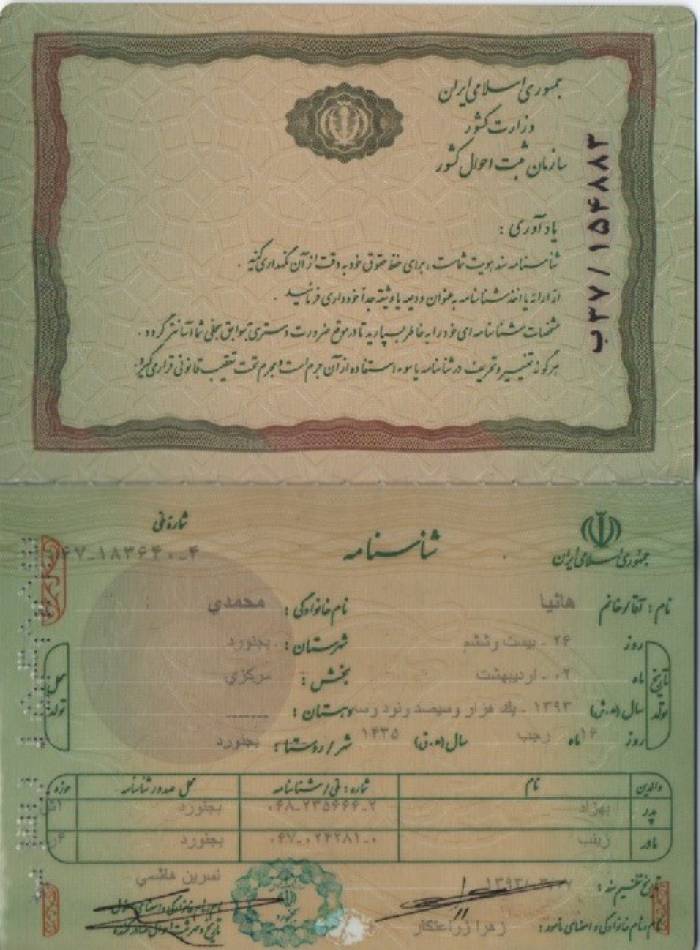 جمهوری اسلامی ایران
وزارت کشور
سازمان ثبت احوال کشور
ب۳۷/۱۵۴۸۸۳
یادآوری :
شناسنامه سند هویت شماست ، برای حفظ حقوق خود به دقت از آن نگهداری کنید .
از ارائه یا اخذ شناسنامه به عنوان ودیعه یا وثیقه جداً خودداری فرمائید .
مشخصات شناسنامه ای خود را به خاطر بسپارید تا در موقع ضرورت دسترسی بسوابق سجلی شما آسانتر گردد .
هرگونه تغییر و تحریف در شناسنامه یا سوء استفاده از آن جرم است و مجرم تحت تعقیب قانونی قرار می گیرد .
جمهوری اسلامی ایران
شناسنامه
شماره ملی
۰۶۷-۱۸۳۶۴۰-۴
نام : آقا/خانم هانیا نام خانوادگی : محمدي
تاریخ تولد
روز ۲۶ - بیست وششم
ماه ۰۲ - اردیبهشت
سال (ه.ش) ۱۳۹۳ - یك هزار وسیصد ونود وسه
روز ۱۶ ماه رجب سال (ه.ق) ۱۴۳۵
محل تولد
شهرستان : بجنورد
بخش : مرکزي
دهستان : ------
شهر / روستا : بجنورد
والدین نام شماره : ملی / شناسنامه محل صدور شناسنامه حوزه
پدر بهزاد ۰۶۸-۲۳۵۶۶۶-۲ بجنورد
مادر زینب ۰۶۷-۰۲۴۲۸۱-۰ بجنورد
تاریخ تنظیم سند :
نام و نام خانوادگی و امضای مأمور : زهرا زراعتکار
نسرین هاشمي